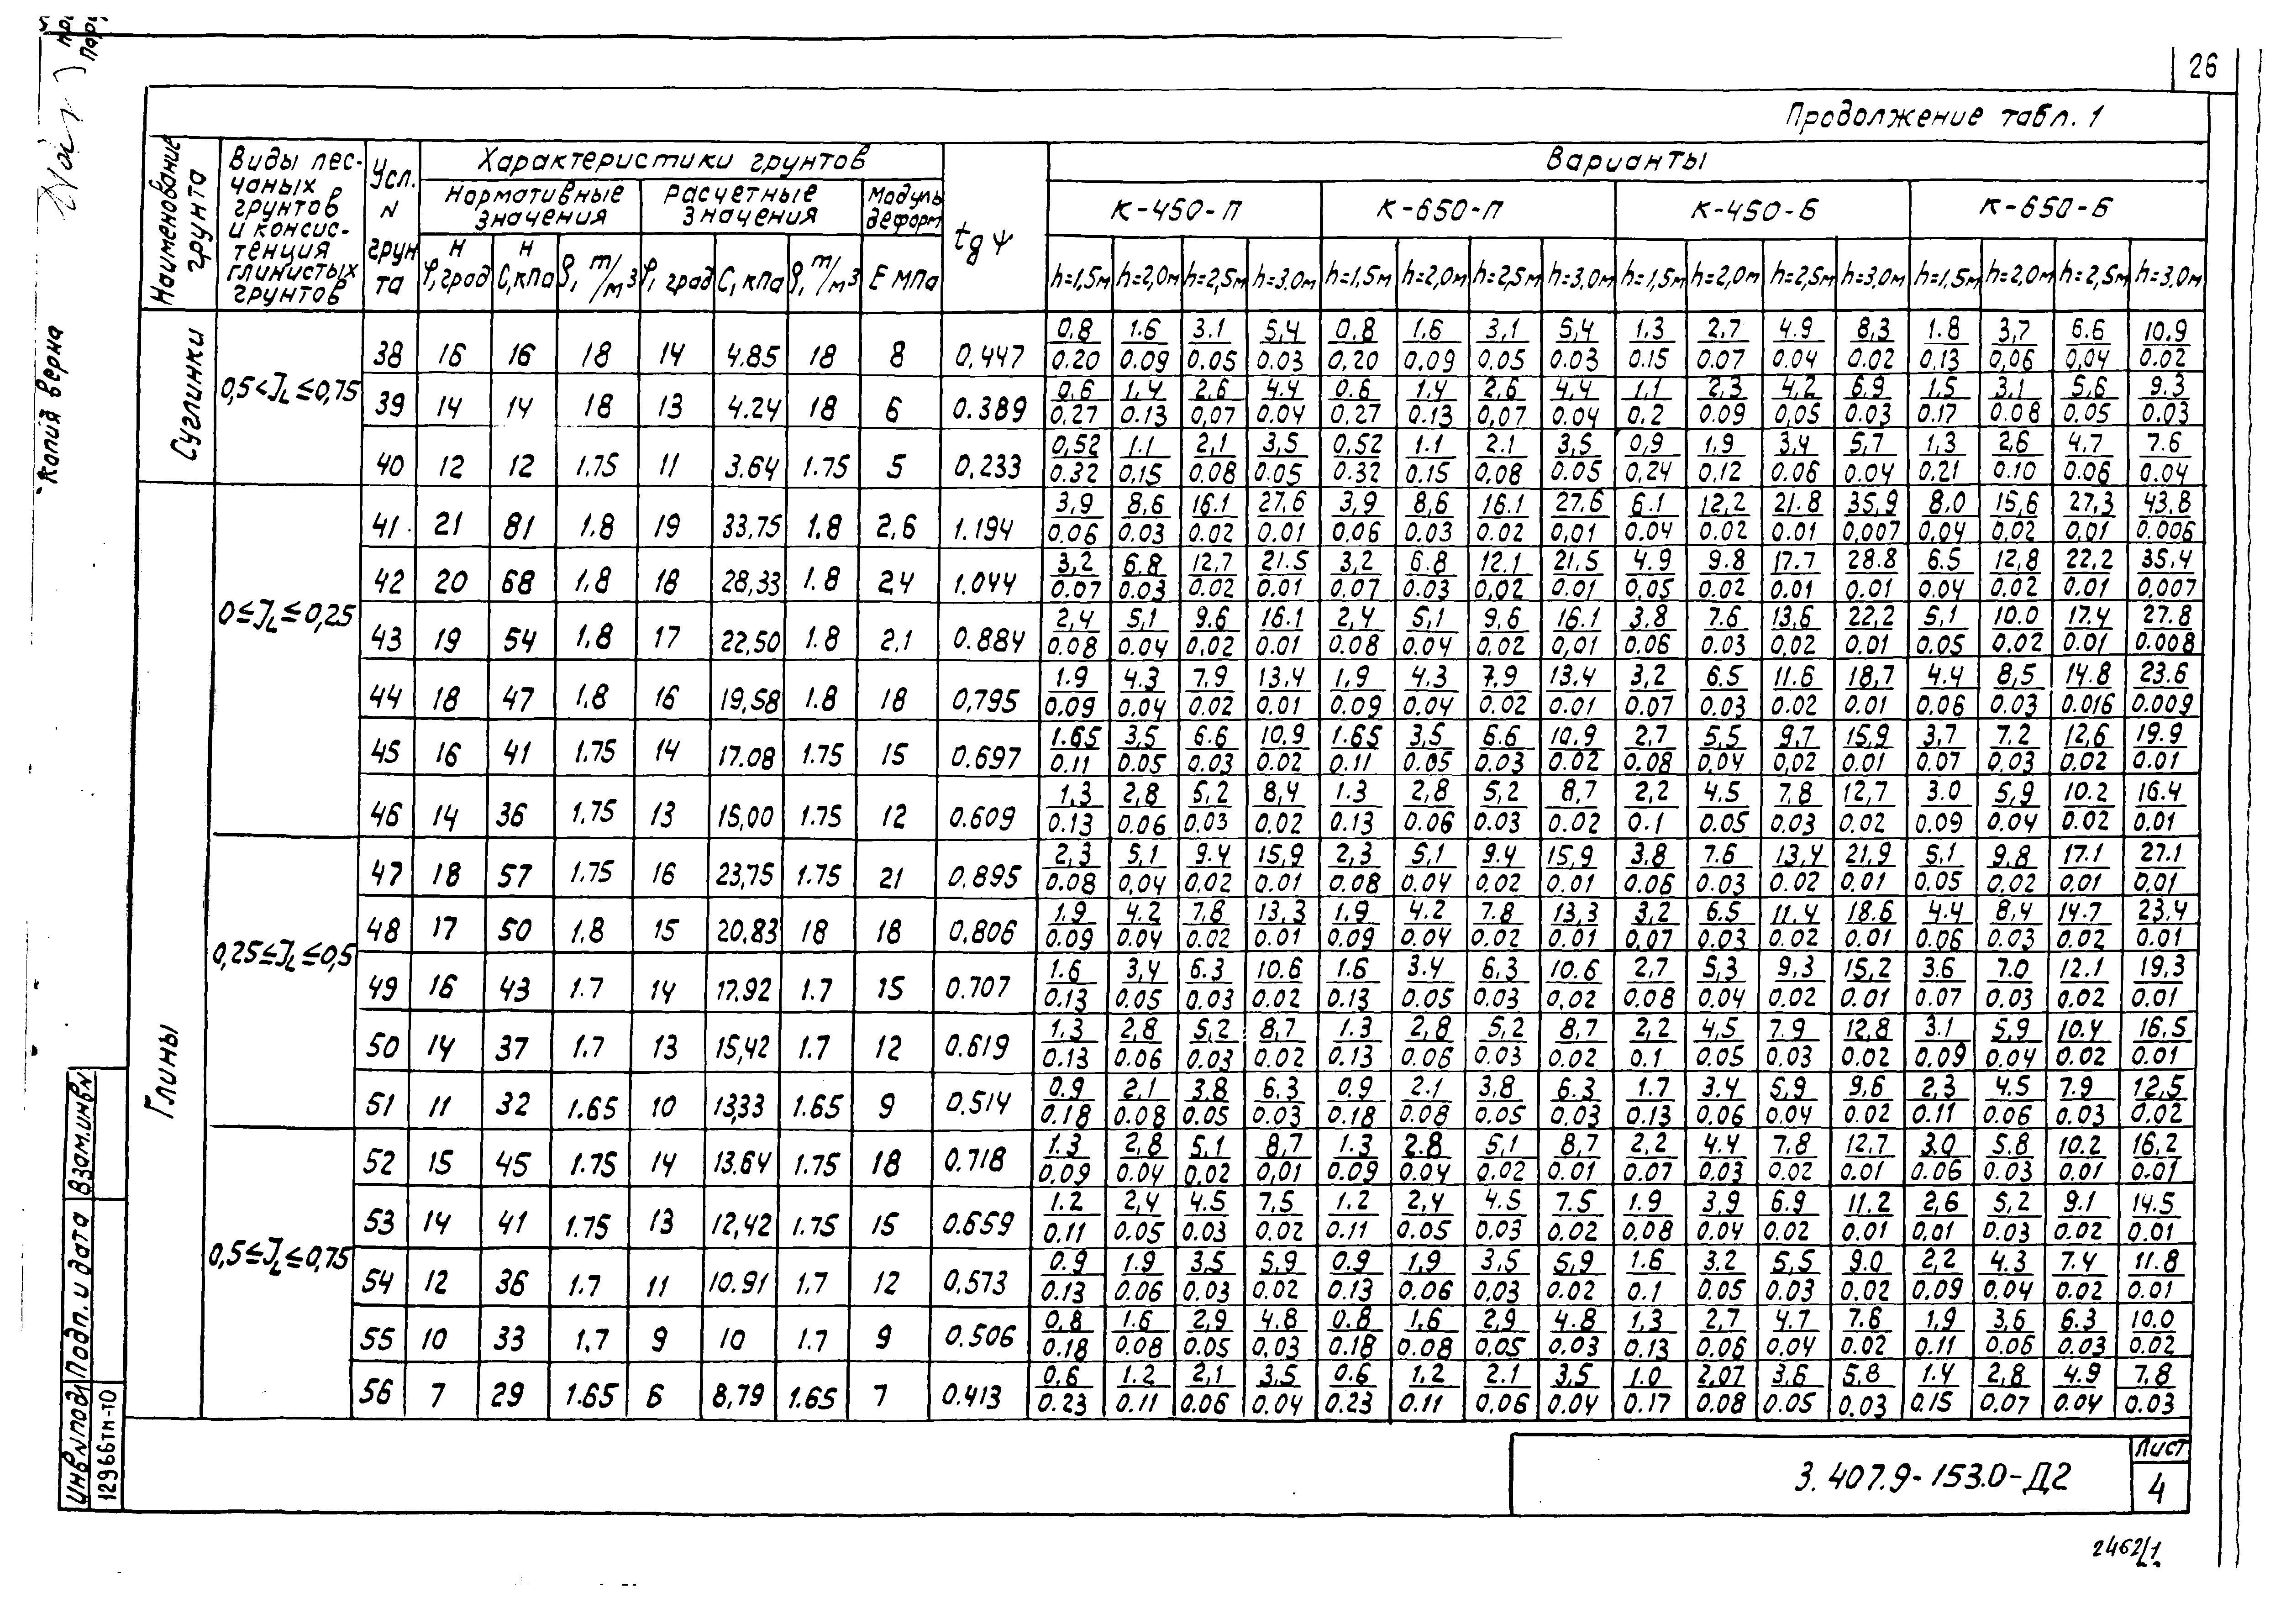 26
Продолжение табл. 1
Копия верна
Наименование грунта
Виды пес-
чаных
грунтов
и консис-
тенция
глинистых
грунтов
Усл. N грунта
Характеристики грунтов
Варианты
Нормативные значения
Расчетные значения
Модуль деформ
tg ψ
К-450-П К-650-П К-450-Б К-650-Б
φᴴ, град Cᴴ, кПа ρ, т/м³ φ, град C, кПа ρ, т/м³ E МПа
h=1,5м h=2,0м h=2,5м h=3.0м h=1,5м h=2,0м h=2,5м h=3,0м h=1,5м h=2,0м h=2,5м h=3.0м h=1,5м h=2,0м h=2,5м h=3.0м
Суглинки
0,5<JL≤0,75
38 16 16 18 14 4.85 18 8 0,447 0.8/0.20 1.6/0.09 3.1/0.05 5,4/0.03 0.8/0,20 1.6/0,09 3,1/0.05 5,4/0.03 1.3/0.15 2.7/0.07 4.9/0.04 8,3/0.02 1.8/0,13 3,7/0,06 6.6/0,04 10.9/0.02
39 14 14 18 13 4.24 18 6 0.389 0,6/0.27 1.4/0.13 2,6/0,07 4.4/0.04 0.6/0.27 1.4/0.13 2,6/0,07 4,4/0.04 1,1/0.2 2,3/0.09 4,2/0,05 6,9/0.03 1,5/0.17 3,1/0.08 5,6/0.05 9.3/0.03
40 12 12 1.75 11 3.64 1.75 5 0,233 0,52/0.32 1.1/0,15 2,1/0.08 3,5/0.05 0,52/0.32 1.1/0.15 2.1/0,08 3,5/0.05 0,9/0,24 1,9/0,12 3,4/0.06 5,7/0.04 1,3/0,21 2,6/0.10 4.7/0.06 7.6/0.04
Глины
0≤JL≤0,25
41 21 81 1.8 19 33,75 1.8 2,6 1.194 3,9/0.06 8,6/0.03 16.1/0.02 27,6/0.01 3,9/0.06 8,6/0.03 16.1/0.02 27,6/0,01 6.1/0.04 12,2/0.02 21.8/0.01 35,9/0,007 8.0/0,04 15,6/0,02 27,3/0,01 43.8/0.006
42 20 68 1,8 18 28,33 1.8 24 1.044 3,2/0.07 6.8/0.03 12,7/0.02 21.5/0.01 3,2/0,07 6.8/0.03 12.1/0,02 21,5/0.01 4.9/0,05 9.8/0.02 17.7/0.01 28.8/0.01 6.5/0.04 12,8/0.02 22,2/0.01 35,4/0,007
43 19 54 1,8 17 22,50 1.8 2,1 0.884 2,4/0.08 5,1/0.04 9.6/0,02 16.1/0.01 2,4/0.08 5,1/0.04 9,6/0.02 16.1/0,01 3.8/0.06 7.6/0.03 13,6/0,02 22,2/0.01 5,1/0.05 10.0/0,02 17.4/0.01 27.8/0.008
44 18 47 1,8 16 19,58 1.8 18 0,795 1.9/0.09 4.3/0.04 7,9/0.02 13.4/0.01 1,9/0.09 4.3/0.04 7,9/0.02 13.4/0.01 3,2/0.07 6.5/0.03 11.6/0.02 18,7/0.01 4.4/0.06 8,5/0.03 14.8/0.016 23.6/0.009
45 16 41 1.75 14 17.08 1.75 15 0.697 1.65/0.11 3,5/0.05 6.6/0.03 10.9/0.02 1.65/0.11 3,5/0.05 6.6/0.03 10,9/0.02 2,7/0.08 5,5/0,04 9,7/0,02 15,9/0.01 3,7/0.07 7.2/0.03 12,6/0.02 19.9/0.01
46 14 36 1.75 13 15,00 1.75 12 0.609 1,3/0.13 2,8/0.06 5,2/0.03 8,4/0.02 1.3/0.13 2,8/0.06 5,2/0.03 8,7/0.02 2,2/0.1 4,5/0.05 7.8/0.03 12,7/0.02 3.0/0.09 5,9/0.04 10.2/0.02 16.4/0.01
0,25≤JL≤0,5
47 18 57 1.75 16 23,75 1.75 21 0.895 2,3/0.08 5,1/0,04 9.4/0.02 15,9/0.01 2,3/0.08 5,1/0.04 9.4/0,02 15,9/0.01 3,8/0.06 7.6/0.03 13,4/0.02 21,9/0,01 5,1/0.05 9,8/0.02 17.1/0,01 27.1/0.01
48 17 50 1.8 15 20,83 18 18 0,806 1.9/0.09 4.2/0.04 7.8/0.02 13,3/0.01 1.9/0.09 4.2/0.04 7.8/0.02 13,3/0.01 3,2/0,07 6.5/0.03 11.4/0.02 18.6/0.01 4.4/0.06 8,4/0.03 14.7/0.02 23,4/0.01
49 16 43 1.7 14 17.92 1.7 15 0.707 1.6/0.13 3,4/0.05 6.3/0.03 10.6/0.02 1.6/0.13 3.4/0.05 6,3/0.03 10.6/0,02 2,7/0.08 5,3/0.04 9,3/0.02 15,2/0.01 3.6/0.07 7.0/0.03 12.1/0.02 19,3/0.01
50 14 37 1.7 13 15,42 1.7 12 0.619 1.3/0.13 2,8/0.06 5,2/0.03 8,7/0.02 1.3/0.13 2,8/0.06 5,2/0.03 8,7/0.02 2,2/0.1 4,5/0.05 7.9/0.03 12,8/0.02 3.1/0.09 5,9/0.04 10.4/0.02 16.5/0.01
51 11 32 1.65 10 13,33 1.65 9 0.514 0.9/0.18 2,1/0.08 3.8/0.05 6,3/0.03 0,9/0.18 2.1/0.08 3,8/0.05 6.3/0,03 1.7/0.13 3.4/0.06 5,9/0.04 9,6/0.02 2,3/0.11 4.5/0.06 7.9/0.03 12,5/0.02
0,5≤JL≤0,75
52 15 45 1.75 14 13.64 1.75 18 0.718 1.3/0.09 2,8/0.04 5,1/0,02 8,7/0,01 1.3/0.09 2.8/0.04 5,1/0.02 8,7/0.01 2,2/0.07 4.4/0.03 7,8/0.02 12.7/0.01 3.0/0.06 5.8/0.03 10.2/0.01 16,2/0.01
53 14 41 1.75 13 12,42 1.75 15 0.659 1.2/0.11 2,4/0.05 4.5/0.03 7,5/0.02 1.2/0.11 2,4/0.05 4.5/0.03 7.5/0.02 1.9/0.08 3,9/0.04 6.9/0.02 11.2/0.01 2,6/0,01 5,2/0.03 9.1/0.02 14.5/0.01
54 12 36 1.7 11 10.91 1.7 12 0,573 0.9/0.13 1.9/0.06 3,5/0.03 5,9/0.02 0.9/0.13 1,9/0.06 3,5/0.03 5,9/0.02 1.6/0.1 3.2/0.05 5,5/0.03 9.0/0.02 2,2/0.09 4.3/0.04 7.4/0.02 11.8/0.01
55 10 33 1,7 9 10 1.7 9 0.506 0,8/0.18 1.6/0.08 2,9/0.05 4.8/0,03 0.8/0.18 1,6/0.08 2,9/0,05 4.8/0.03 1,3/0.13 2,7/0.06 4.7/0.04 7.6/0.02 1,9/0.11 3,6/0.06 6.3/0.03 10.0/0.02
56 7 29 1.65 6 8,79 1.65 7 0.413 0,6/0.23 1.2/0.11 2,1/0.06 3,5/0.04 0.6/0.23 1,2/0.11 2.1/0.06 3,5/0.04 1.0/0.17 2,07/0.08 3,6/0.05 5,8/0.03 1.4/0.15 2,8/0.07 4.9/0.04 7,8/0.03
Взам.инв.N
Подп. и дата
Инв.N подл
12966тм-10
3.407.9-153.0-Д2
Лист
4
2462/1